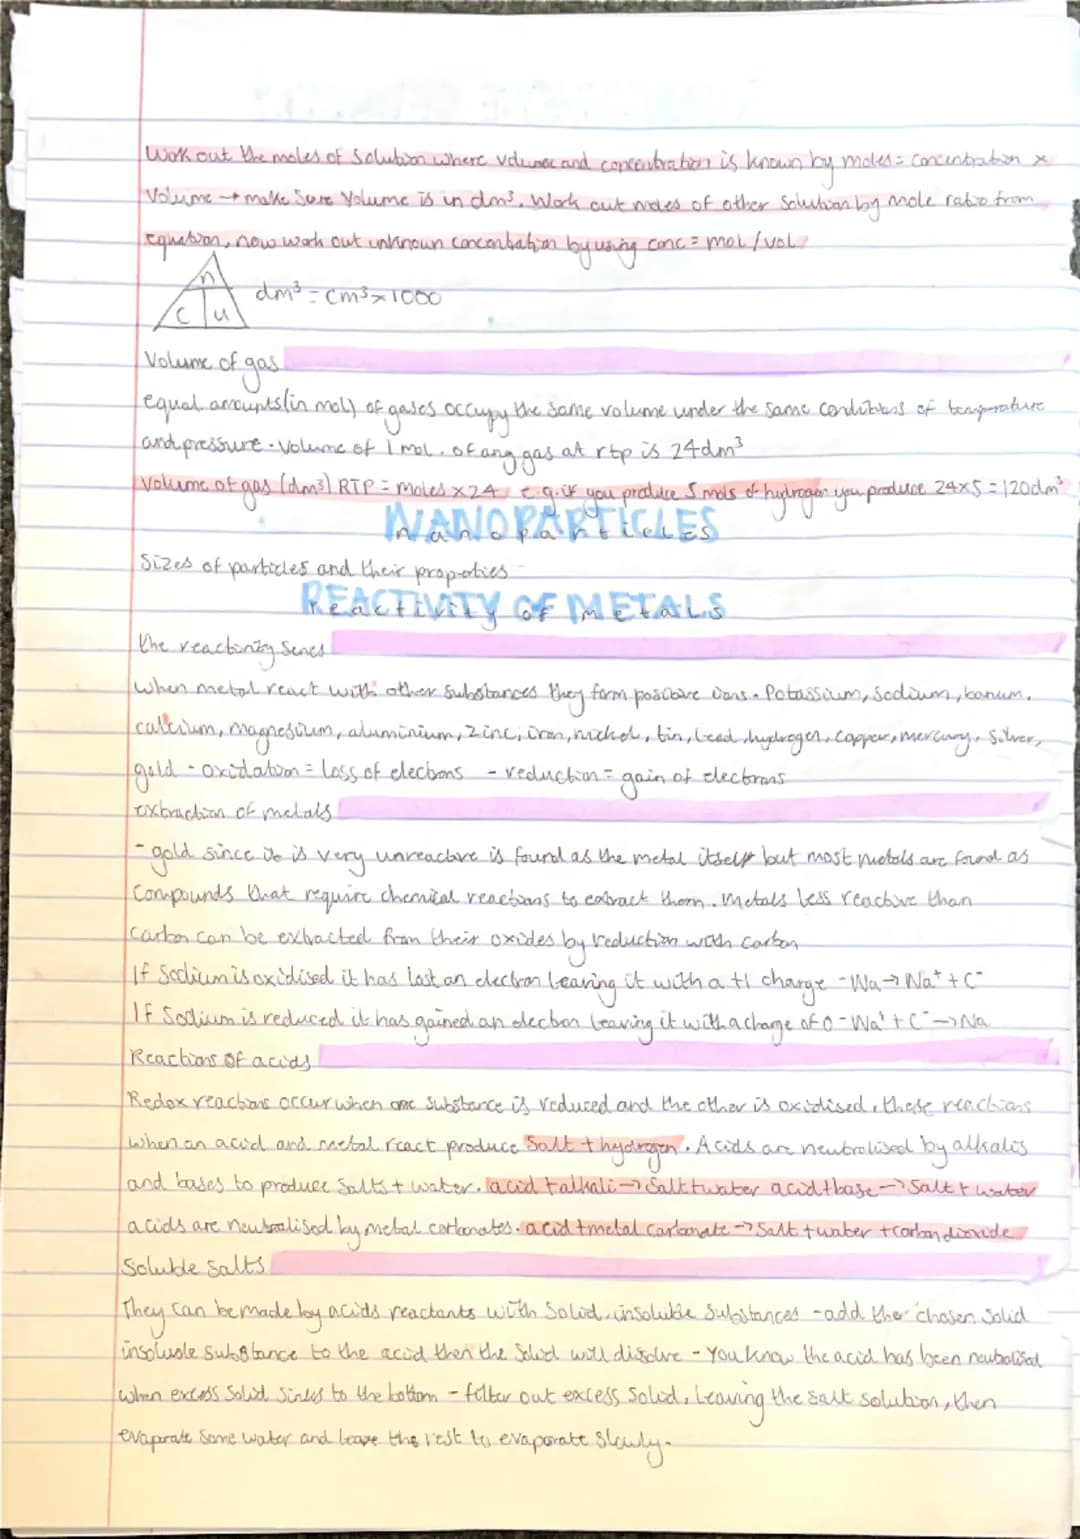 Work out the moles of solution where volume and concentration is known by moles = concentration ×
Volume → make sure Volume is in dm³. Work out moles of other solution by mole ratio from
equation, now work out unknown concentration by using conc = mol/vol
n
c u
dm³ = cm³ × 1000
Volume of gas
equal amounts (in mol) of gases occupy the same volume under the same conditions of temperature
and pressure. Volume of 1 mol. of any gas at rtp is 24dm³
Volume of gas (dm³) RTP = moles × 24 e.g. if you produce 5 mols of hydrogen you produce 24×5 = 120dm³
NANOPARTICLES
nanoparticles
Sizes of particles and their properties
REACTIVITY OF METALS
reactivity of metals
the reactivity series
when metal react with other substances they form positive ions. Potassium, sodium, barium,
calcium, magnesium, aluminium, zinc, iron, nickel, tin, lead, hydrogen, copper, mercury, silver,
gold - oxidation = loss of electrons - reduction = gain of electrons
extraction of metals
- gold since it is very unreactive is found as the metal itself but most metals are found as
compounds that require chemical reactions to extract them. Metals less reactive than
carbon can be extracted from their oxides by reduction with carbon
If Sodium is oxidised it has lost an electron leaving it with a +1 charge - Na → Na⁺ + e⁻
If Sodium is reduced it has gained an electron leaving it with a charge of 0 - Na⁺ + e⁻ → Na
Reactions of acids
Redox reactions occur when one substance is reduced and the other is oxidised, these reactions
when an acid and metal react produce Salt + hydrogen. Acids are neutralised by alkalis
and bases to produce salts + water. acid + alkali → Salt + water acid + base → Salt + water
acids are neutralised by metal carbonates. acid + metal carbonate → Salt + water + carbon dioxide
Soluble salts
They can be made by acids reactants with solid, insoluble substances - add the chosen solid
insoluble substance to the acid then the solid will dissolve - You know the acid has been neutralised
when excess solid sinks to the bottom - filter out excess solid, leaving the salt solution, then
evaporate some water and leave the rest to evaporate slowly.